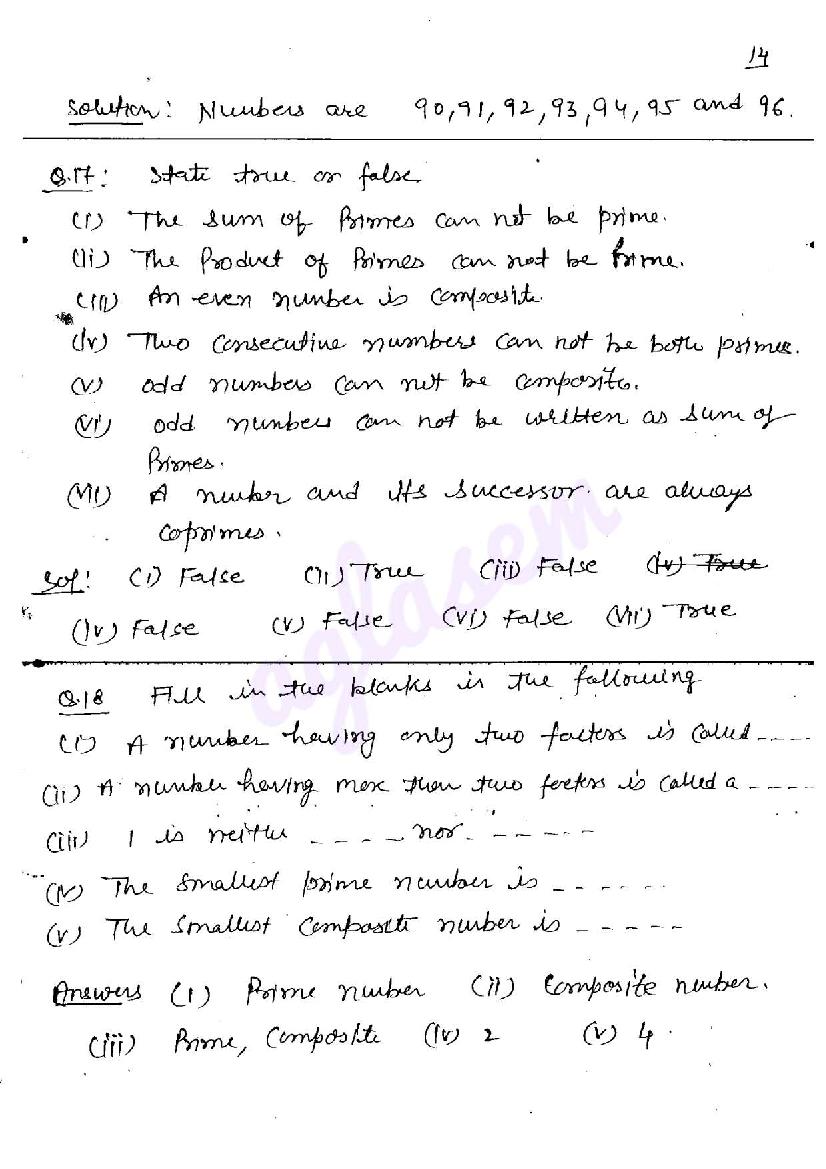 14
Solution: Numbers are 90, 91, 92, 93, 94, 95 and 96.
Q.17: State true or false
(i) The sum of Primes can not be prime.
(ii) The Product of Primes can not be Prime.
(iii) An even number is composite.
(iv) Two Consecutive numbers can not be both primes.
(v) odd numbers can not be composite.
(vi) odd numbers can not be written as sum of
Primes.
(vii) A number and its successor are always
coprimes.
Sol: (i) False (ii) True (iii) False (iv) True
(iv) False (v) False (vi) False (vii) True
aglasem
Q.18 Fill in the blanks in the following
(i) A number having only two factors is called ----
(ii) A number having more than two factors is called a ----
(iii) 1 is neither ---- nor -----
(iv) The smallest prime number is ------
(v) The smallest Composite number is -----
Answers (i) Prime number (ii) Composite number.
(iii) Prime, Composite (iv) 2 (v) 4.